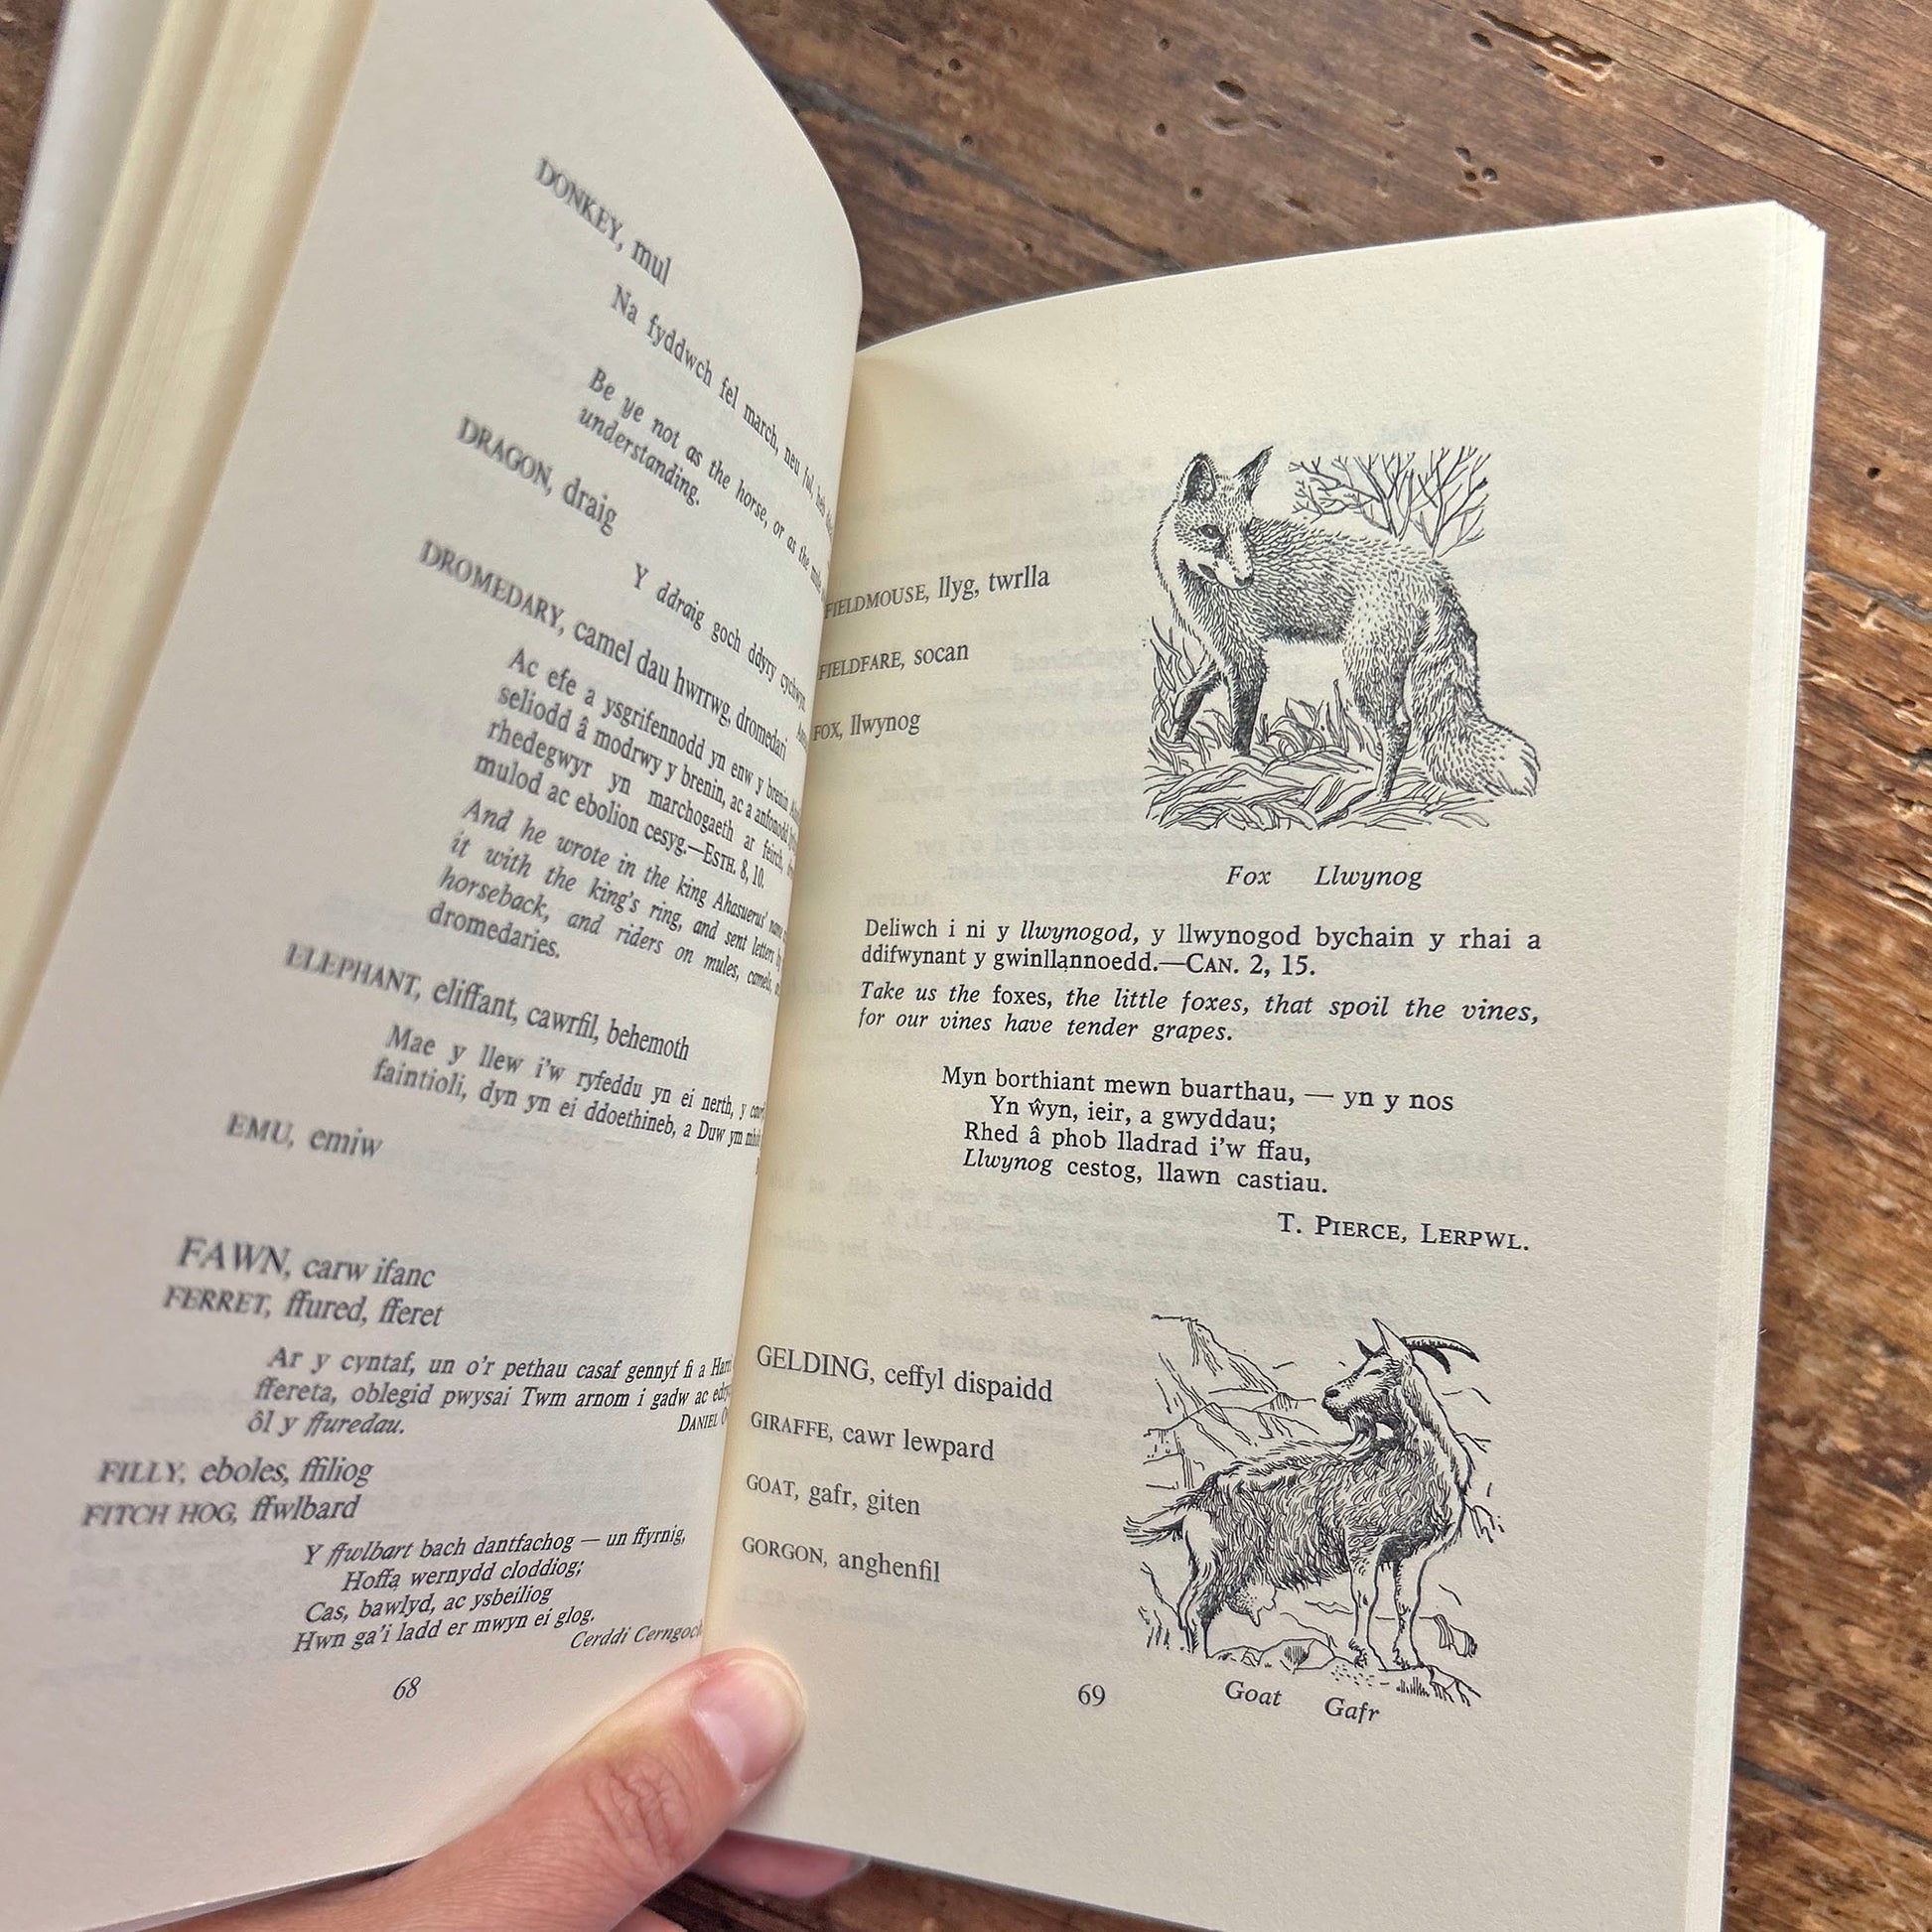 DONKEY, mul
Na fyddwch fel march, neu ful, heb
Be ye not as the horse, or as the mule
understanding.
DRAGON, draig
Y ddraig goch ddyry cychwyn.
DROMEDARY, camel dau hwrrwg, dromedari
Ac efe a ysgrifennodd yn enw y brenin
seliodd â modrwy y brenin, ac a anfonodd
rhedegwyr yn marchogaeth ar feirch,
mulod ac ebolion cesyg.—ESTH. 8, 10.
And he wrote in the king Ahasuerus' name
it with the king's ring, and sent letters by
horseback, and riders on mules, camels,
dromedaries.
ELEPHANT, eliffant, cawrfil, behemoth
Mae y llew i'w ryfeddu yn ei nerth, y
faintioli, dyn yn ei ddoethineb, a Duw ym
EMU, emiw
FAWN, carw ifanc
FERRET, ffured, fferet
Ar y cyntaf, un o'r pethau casaf gennyf fi a
ffereta, oblegid pwysai Twm arnom i gadw ac
ôl y ffuredau. DANIEL
FILLY, eboles, ffiliog
FITCH HOG, ffwlbard
Y ffwlbart bach dantfachog — un ffyrnig,
Hoffa wernydd cloddiog;
Cas, bawlyd, ac ysbeiliog
Hwn ga'i ladd er mwyn ei glog.
Cerddi Cerngoch
68
FIELDMOUSE, llyg, twrlla
FIELDFARE, socan
FOX, llwynog
Fox Llwynog
Deliwch i ni y llwynogod, y llwynogod bychain y rhai a
ddifwynant y gwinllannoedd.—CAN. 2, 15.
Take us the foxes, the little foxes, that spoil the vines,
for our vines have tender grapes.
Myn borthiant mewn buarthau, — yn y nos
Yn ŵyn, ieir, a gwyddau;
Rhed â phob lladrad i'w ffau,
Llwynog cestog, llawn castiau.
T. PIERCE, LERPWL.
GELDING, ceffyl dispaidd
GIRAFFE, cawr lewpard
GOAT, gafr, giten
GORGON, anghenfil
Goat Gafr
69